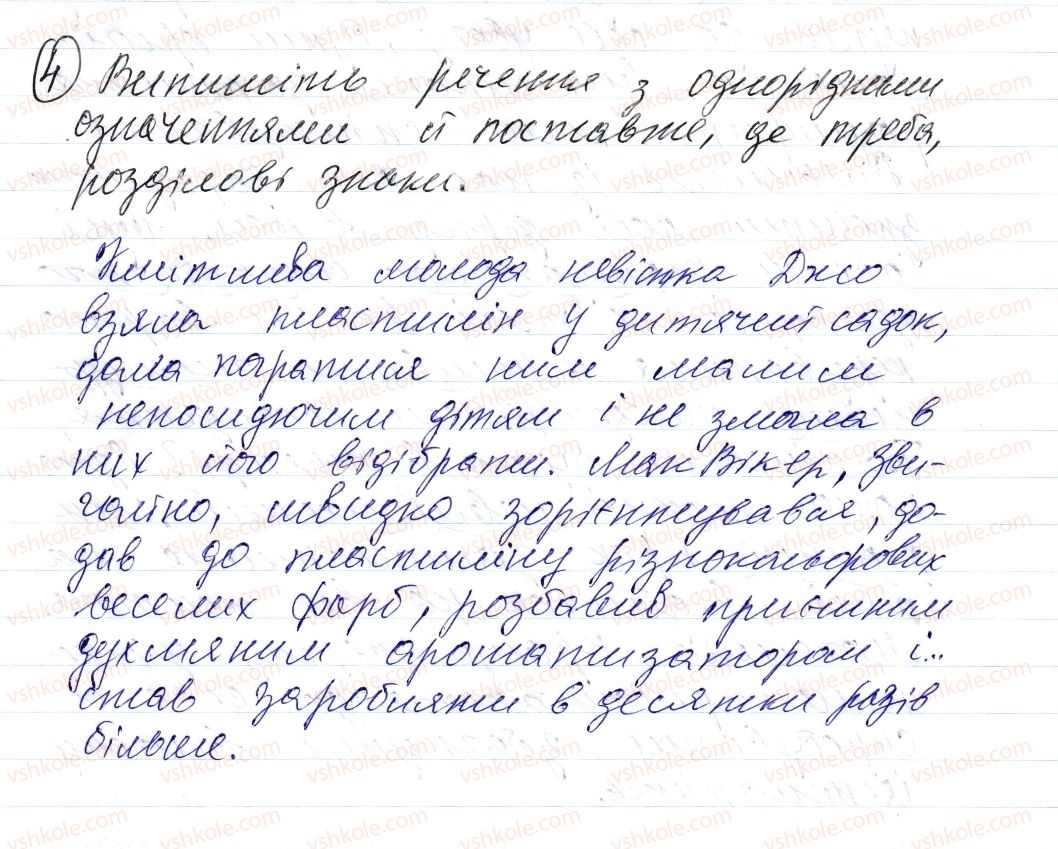 4 Випишіть речення з однорідними
означеннями й поставте, де треба,
розділові знаки.
Кмітлива молода невістка Джо
взяла пластилін у дитячий садок,
дала гратися ним малим
непосидючим дітям і не змогла в
них його відібрати. МакВікер, зви-
чайно, швидко зорієнтувався, до-
дав до пластиліну різнокольорових
веселих фарб, розбавив приємним
духмяним ароматизатором і...
став заробляти в десятки разів
більше.